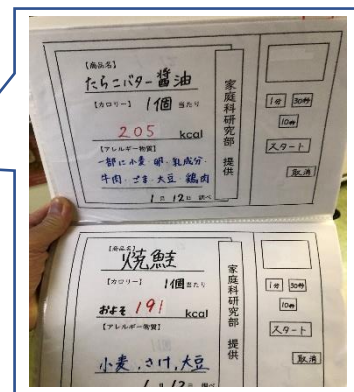 【商品名】
たらこバター醤油
【カロリー】 1個 当たり
205 kcal
【アレルギー物質】
一部に小麦 卵 乳成分
牛肉 ごま 大豆 鶏肉
1月12日 調べ
家庭科研究部 提供
1分 30秒
10秒
スタート
取消
【商品名】
焼鮭
【カロリー】 1個 当たり
およそ 191 kcal
【アレルギー物質】
小麦、さけ、大豆
1月12日 調べ
家庭科研究部 提供
1分 30秒
10秒
スタート
取消